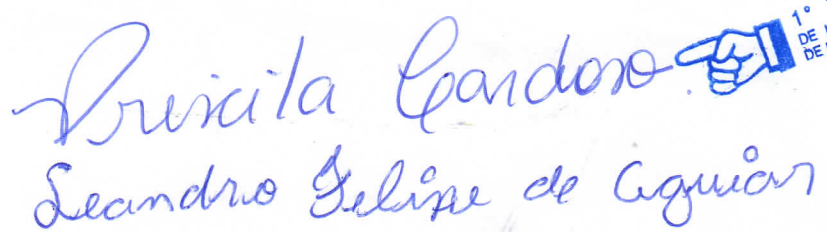 Priscila Cardoso
1°
DE
DE
Leandro Felipe de Aguiar